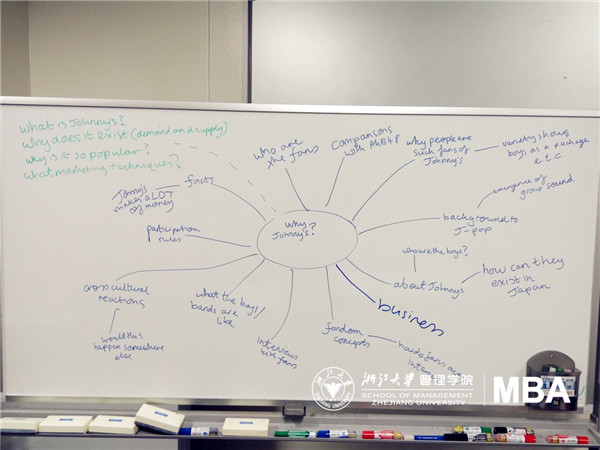 what is Johnny's?
why does it exist (demand and supply)
why is it so popular?
what marketing techniques?
who are
the fans
comparisons
with AKB48
why people are
such fans of
Johnny's
variety shows
boys as a package
etc
emergence of
group sound
background to
J-pop
who are the boys?
about Johnnys
how can they
exist in
Japan
business
fandom
concepts
how do fans
interviews
with fans
what the boys/
bands are
like
cross cultural
reactions
would this
happen somewhere
else
participation
rules
facts
Johnny's
makes a LOT
of money
why
Johnny's?
浙江大学 管理学院
SCHOOL OF MANAGEMENT
ZHEJIANG UNIVERSITY
MBA